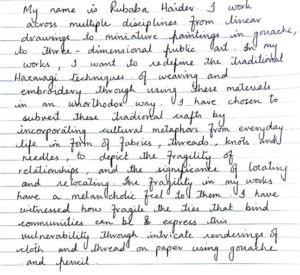 My name is Rubaba Haider. I work
across multiple disciplines from linear
drawings to miniature paintings in gouache,
to three-dimensional public art. In my
works, I want to redefine the traditional
Hazaragi techniques of weaving and
embroidery through using these materials
in an unorthodox way. I have chosen to
subvert these traditional crafts by
incorporating cultural metaphors from everyday
life in form of fabrics, threads, knots and
needles, to depict the fragility of
relationships and the significance of locating
and relocating. The fragility in my works
have a melancholic feel to them. I have
witnessed how fragile the ties that bind
communities can be & express this
vulnerability through intricate renderings of
cloth and thread on paper using gouache
and pencil.